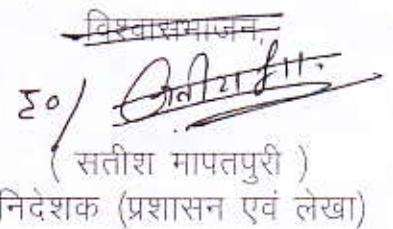 विश्वासभाजन,
ह०/
( सतीश मापतपुरी )
निदेशक (प्रशासन एवं लेखा)